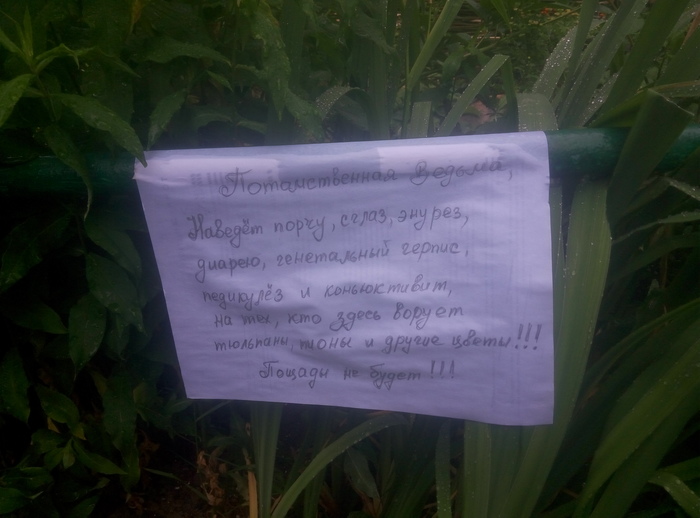 !!! Потомственная Ведьма,
Наведёт порчу, сглаз, энурез,
диарею, генетальный герпис,
педикулёз и коньюктивит,
на тех, кто здесь ворует
тюльпаны, пионы и другие цветы!!!
Пощады не будет!!!